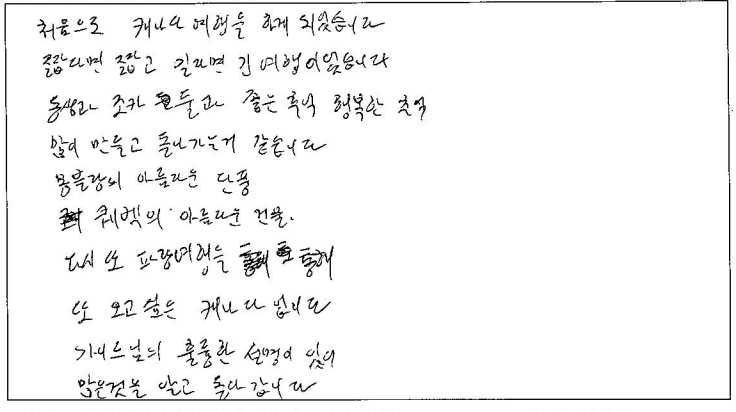 처음으로 캐나다 여행을 하게 되었습니다
짧다면 짧고 길다면 긴 여행이었습니다
동생과 조카 둘과 좋은 추억 행복한 추억
많이 만들고 돌아가는거 같습니다
몽블랑의 아름다운 단풍
퀘벡의 아름다운 건물.
다시 또 파랑여행을 통해
또 오고싶은 캐나다 입니다
가이드님의 훌륭한 설명이 있어
많은것을 알고 돌아갑니다